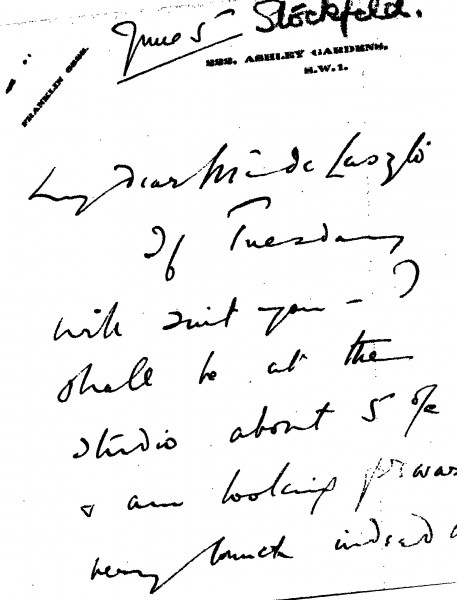 June 5 Stockfeld.
222, ASHLEY GARDENS,
S.W.1.
FRANKLIN
My dear Mr de Laszlo
If Tuesday
will suit you - I
shall be at the
studio about 5 o/c
& am looking forwar
very much indeed